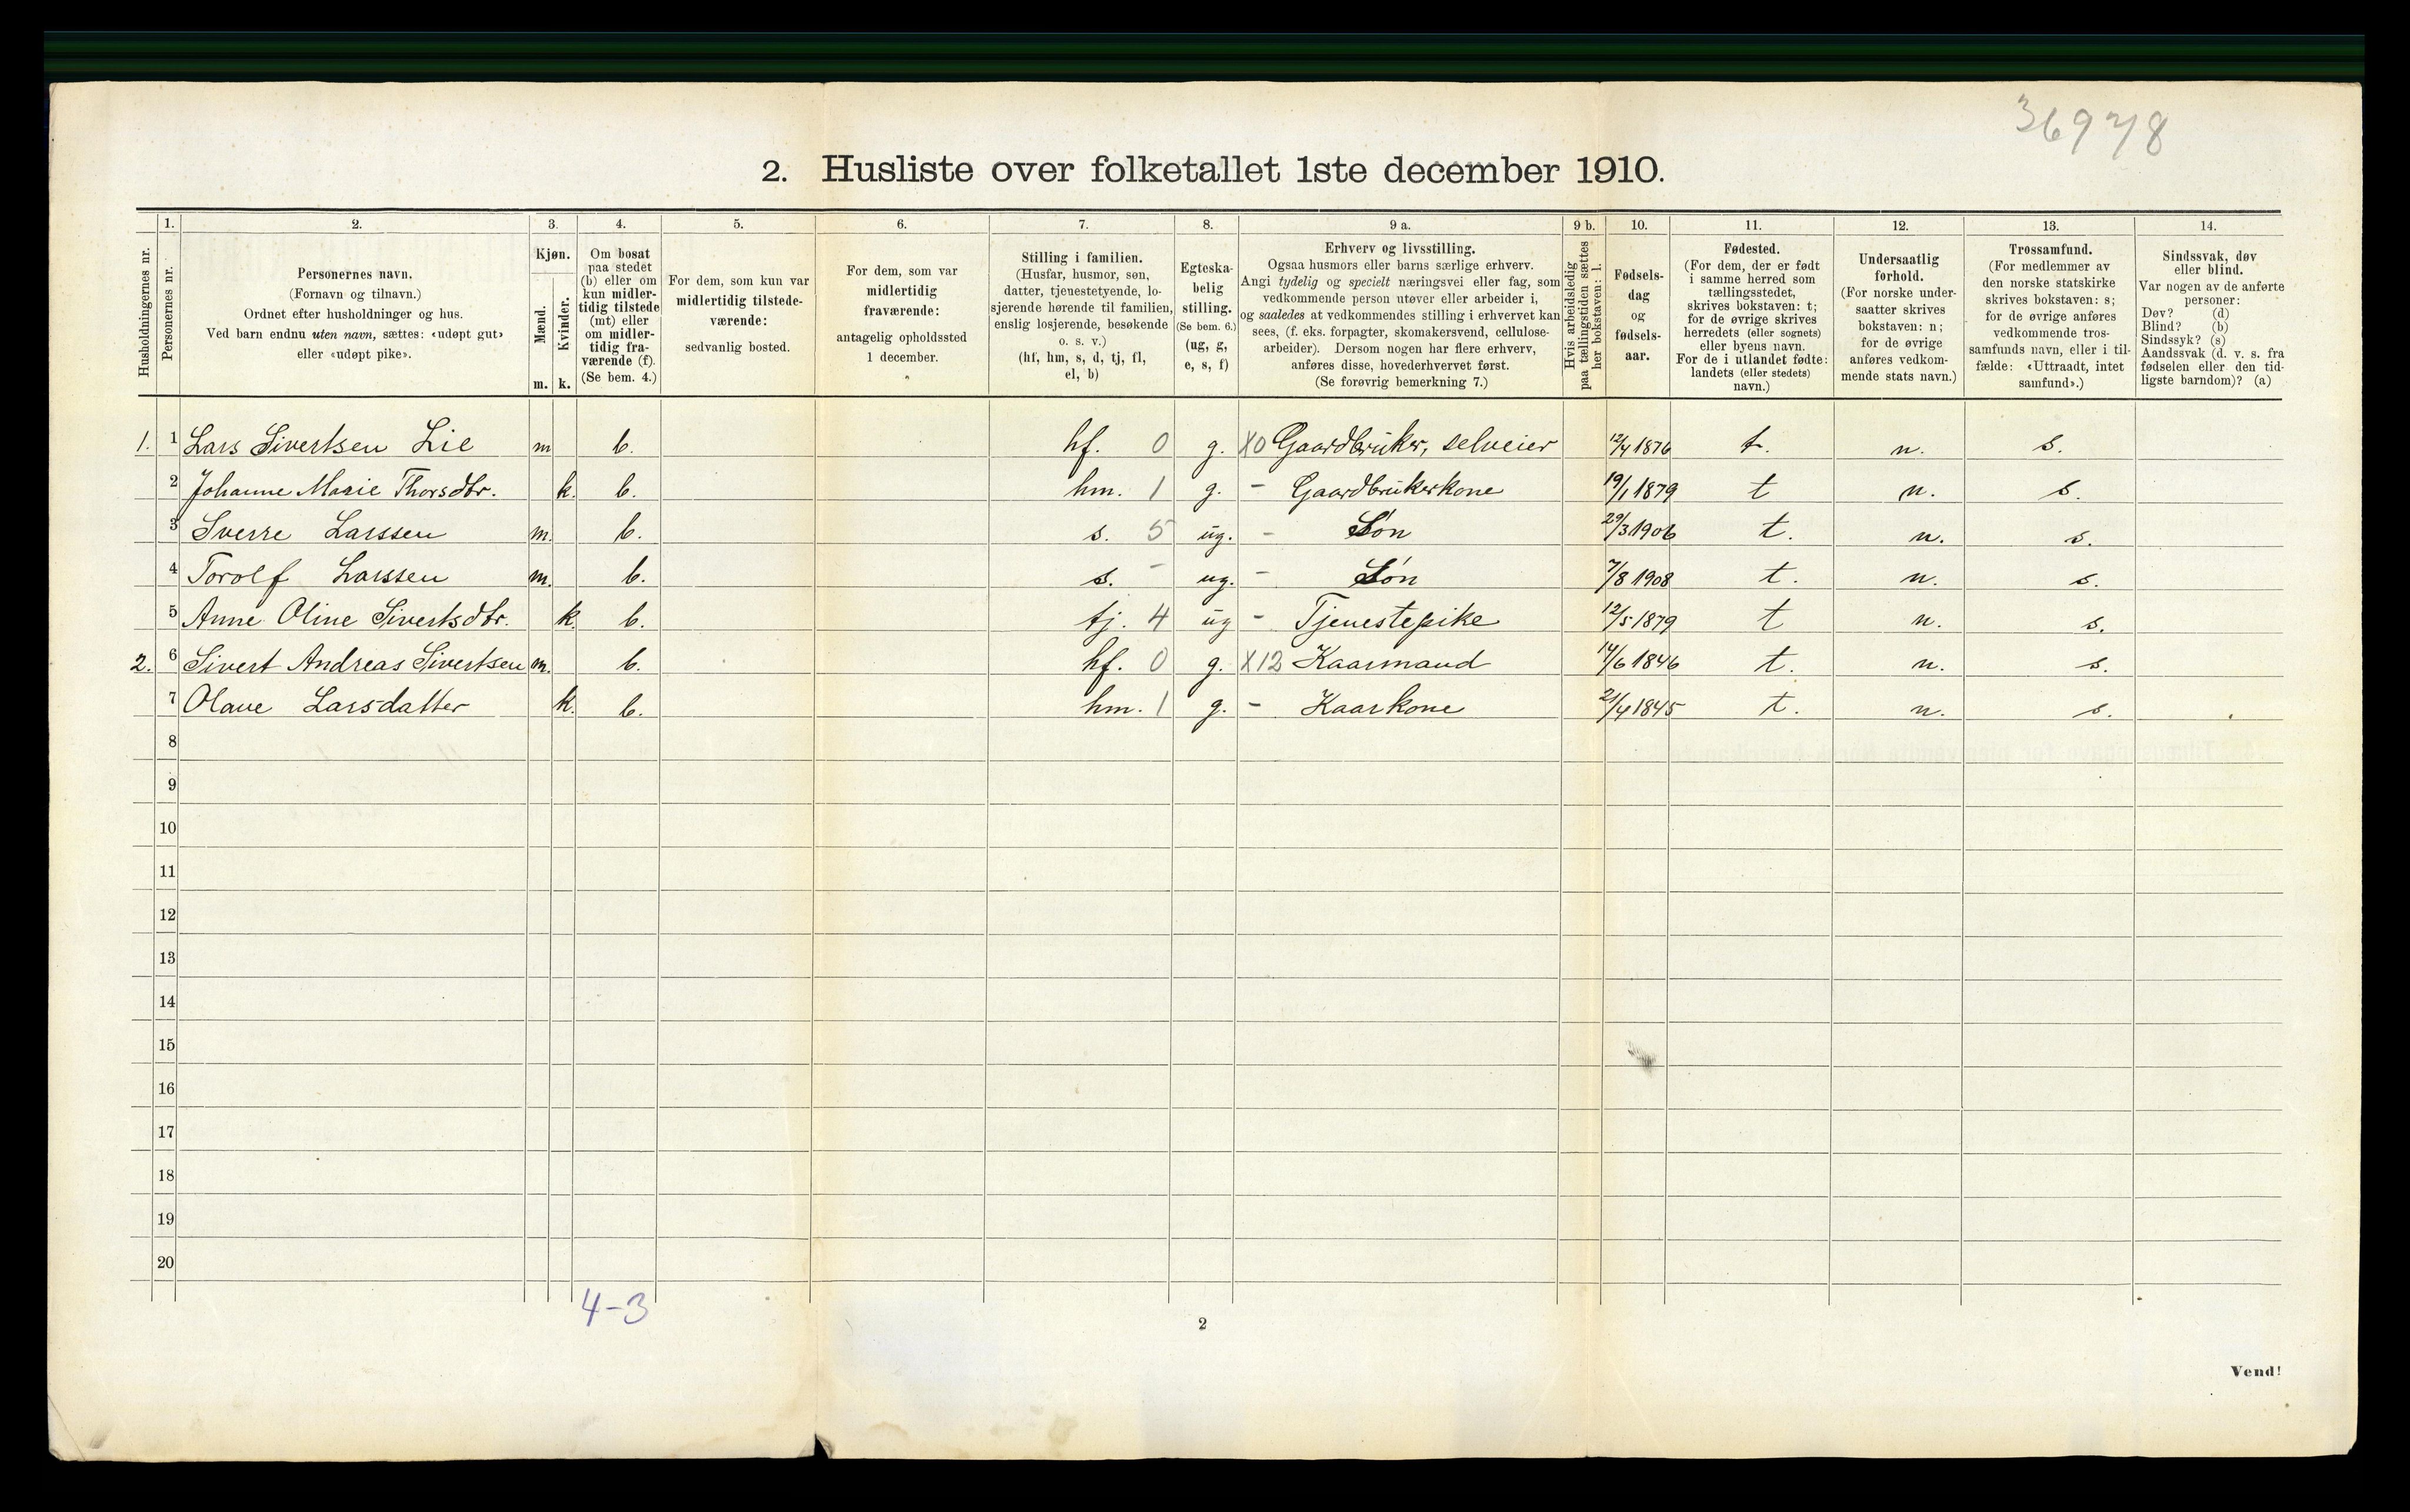 36978
2. Husliste over folketallet 1ste december 1910.
Husholdningernes nr.
1. Personernes nr.
2.
Personernes navn.
(Fornavn og tilnavn.)
Ordnet efter husholdninger og hus.
Ved barn endnu uten navn, sættes: «udøpt gut»
eller «udøpt pike».
3.
Kjøn.
Mænd. Kvinder.
m. k.
4.
Om bosat
paa stedet
(b) eller om
kun midler-
tidig tilstede
(mt) eller
om midler-
tidig fra-
værende (f).
(Se bem. 4.)
5.
For dem, som kun var
midlertidig tilstede-
værende:
sedvanlig bosted.
6.
For dem, som var
midlertidig
fraværende:
antagelig opholdssted
1 december.
7.
Stilling i familien.
(Husfar, husmor, søn,
datter, tjenestetyende, lo-
sjerende hørende til familien,
enslig losjerende, besøkende
o. s. v.)
(hf, hm, s, d, tj, fl,
el, b)
8.
Egteska-
belig
stilling.
(Se bem. 6.)
(ug, g,
e, s, f)
9 a.
Erhverv og livsstilling.
Ogsaa husmors eller barns særlige erhverv.
Angi tydelig og specielt næringsvei eller fag, som
vedkommende person utøver eller arbeider i,
og saaledes at vedkommendes stilling i erhvervet kan
sees, (f. eks. forpagter, skomakersvend, cellulose-
arbeider). Dersom nogen har flere erhverv,
anføres disse, hovederhvervet først.
(Se forøvrig bemerkning 7.)
9 b.
Hvis arbeidsledig
paa tællingstiden sættes
her bokstaven: l.
10.
Fødsels-
dag
og
fødsels-
aar.
11.
Fødested.
(For dem, der er født
i samme herred som
tællingsstedet,
skrives bokstaven: t;
for de øvrige skrives
herredets (eller sognets)
eller byens navn.
For de i utlandet fødte:
landets (eller stedets)
navn.)
12.
Undersaatlig
forhold.
(For norske under-
saatter skrives
bokstaven: n;
for de øvrige
anføres vedkom-
mende stats navn.)
13.
Trossamfund.
(For medlemmer av
den norske statskirke
skrives bokstaven: s;
for de øvrige anføres
vedkommende tros-
samfunds navn, eller i til-
fælde: «Uttraadt, intet
samfund».)
14.
Sindssvak, døv
eller blind.
Var nogen av de anførte
personer:
Døv? (d)
Blind? (b)
Sindssyk? (s)
Aandssvak (d. v. s. fra
fødselen eller den tid-
ligste barndom)? (a)
1. 1 Lars Sivertsen Lie m b. hf. 0 g. X0 Gaardbruker, selveier 12/4 1876 t. n. s.
2 Johanne Marie Thorsdtr. k. b. hm. 1 g. - Gaardbrukerkone 19/1 1879 t n. s.
3 Sverre Larssen m. b. s. 5 ug. - Søn 29/3 1906 t. n. s.
4 Torolf Larssen m. b. s. - ug. - Søn 7/8 1908 t. n. s.
5 Anne Oline Sivertsdtr. k. b. tj. 4 ug - Tjenestepike 12/5 1879 t n. s.
2. 6 Sivert Andreas Sivertsen m. b. hf. 0 g. X12 Kaarmand 14/6 1846 t. n. s.
7 Olave Larsdatter k. b. hm. 1 g. - Kaarkone 21/4 1845 t. n. s.
8
9
10
11
12
13
14
15
16
17
18
19
20
4-3
2
Vend!